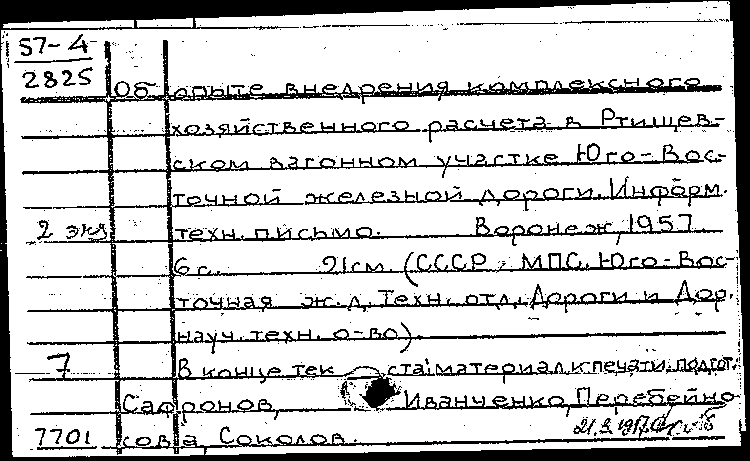 57-4
2825
Об опыте внедрения комплексного
хозяйственного расчета в Ртищев-
ском вагонном участке Юго-Вос-
точной железной дороги. Информ.
2 экз техн. письмо. Воронеж, 1957.
6 с. 21см. (СССР, МПС. Юго-Вос-
точная ж.д. Техн. отд. Дороги и Дор.
науч. техн. о-во).
7 В конце текста: материал к печати подгот.
Сафронов, Иванченко, Перебейно
7701 сов а, Соколов.